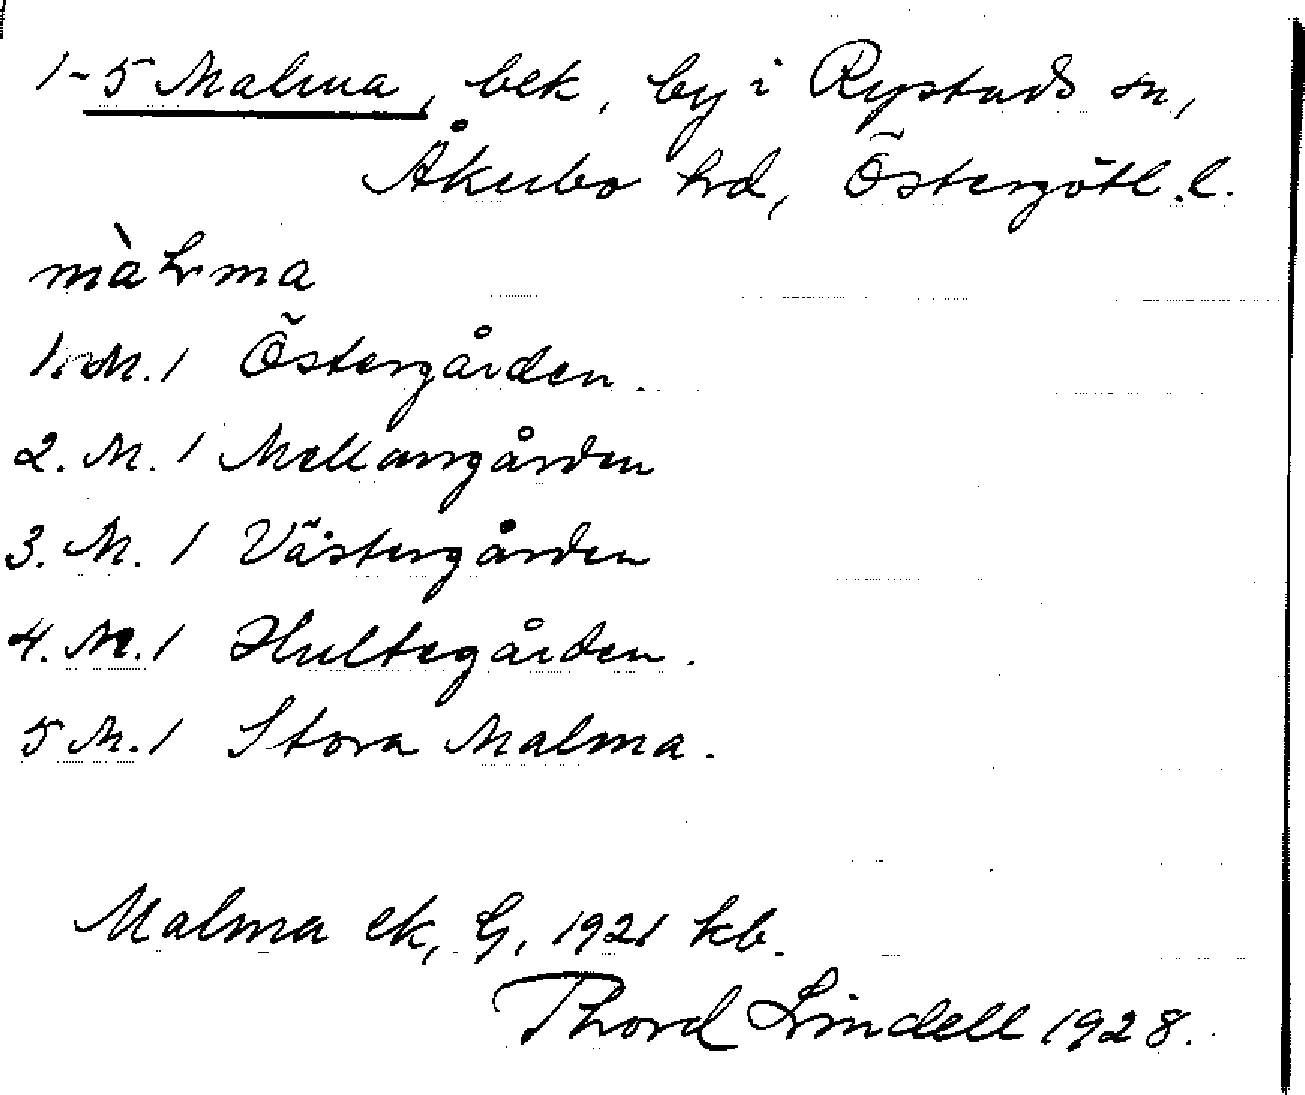 1-5 Malma, bek, by i Rystads sn,
Åkerbo hd, Östergötl. l.
màlma
1. M. 1 Östergården.
2. M. 1 Mellangården
3. M. 1 Västergården
4. M. 1 Hultegården.
5 M. 1 Stora Malma.
Malma ek, G, 1921 kb.
Thord Lindell 1928.